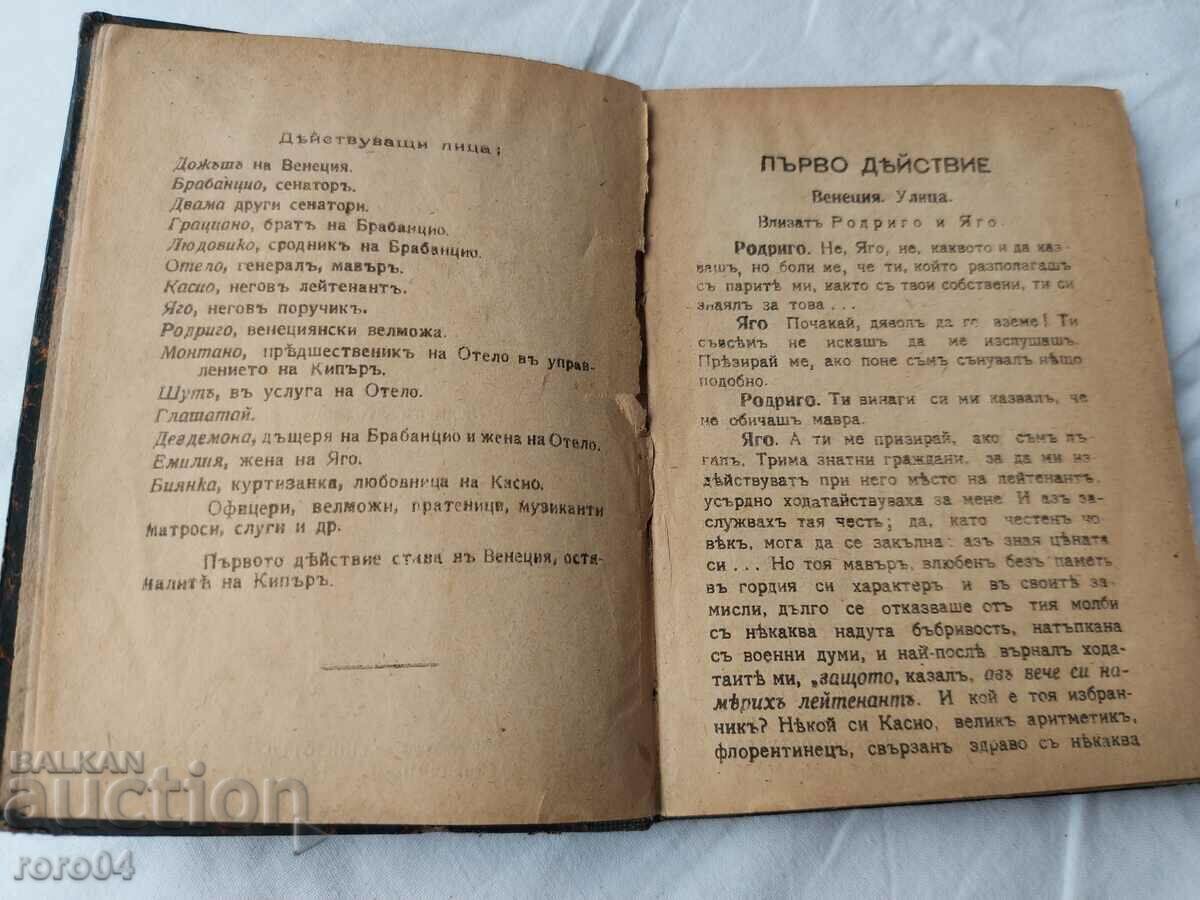 Дѣйствуващи лица:
Дожътъ на Венеция.
Брабанцио, сенаторъ.
Двама други сенатори.
Грациано, братъ на Брабанцио.
Людовико, сродникъ на Брабанцио.
Отело, генералъ, мавъръ.
Касио, неговъ лейтенантъ.
Яго, неговъ поручикъ.
Родриго, венециянски велможа.
Монтано, прѣдшественикъ на Отело въ управ-
лението на Кипъръ.
Шутъ, въ услуга на Отело.
Глашатай.
Дездемона, дъщеря на Брабанцио и жена на Отело.
Емилия, жена на Яго.
Биянка, куртизанка, любовница на Касио.
Офицери, велможи, пратеници, музиканти
матроси, слуги и др.
Първото дѣйствие става въ Венеция, оста-
малитѣ на Кипъръ.
ПЪРВО ДѢЙСТВИЕ
Венеция. Улица.
Влизатъ Родриго и Яго.
Родриго. Не, Яго, не, каквото и да каз-
вашъ, но боли ме, че ти, който разполагаш
съ паритѣ ми, както съ твои собствени, ти си
знаялъ за това ...
Яго Почакай, дяволъ да го вземе! Ти
съвсѣмъ не искашъ да ме изслушашъ.
Прѣзирай ме, ако поне съмъ сънувалъ нѣщо
подобно.
Родриго. Ти винаги си ми казвалъ, че
не обичашъ мавра.
Яго. А ти ме призирай, ако съмъ лъ-
галъ. Трима знатни граждани, за да ми из
дѣйствуватъ при него мѣсто на лейтенантъ,
усърдно ходатайствуваха за мене И азъ за-
служвахъ тая честь; да, като честенъ чо-
вѣкъ, мога да се закълна: азъ зная цѣната
си ... Но тоя мавъръ, влюбенъ безъ паметь
въ гордия си характеръ и въ своитѣ за-
мисли, дълго се отказваше отъ тия молби
съ нѣкаква надута бъбривость, натъпкана
съ военни думи, и най-послѣ върналъ хода-
таитѣ ми, „защото, казалъ, азъ вече си на-
мѣрихъ лейтенантъ. И кой е тоя избран-
никъ? Нѣкой си Касио, великъ аритметикъ,
флорентинецъ, свързанъ здраво съ нѣкаква
BALKAN
auction
roro04